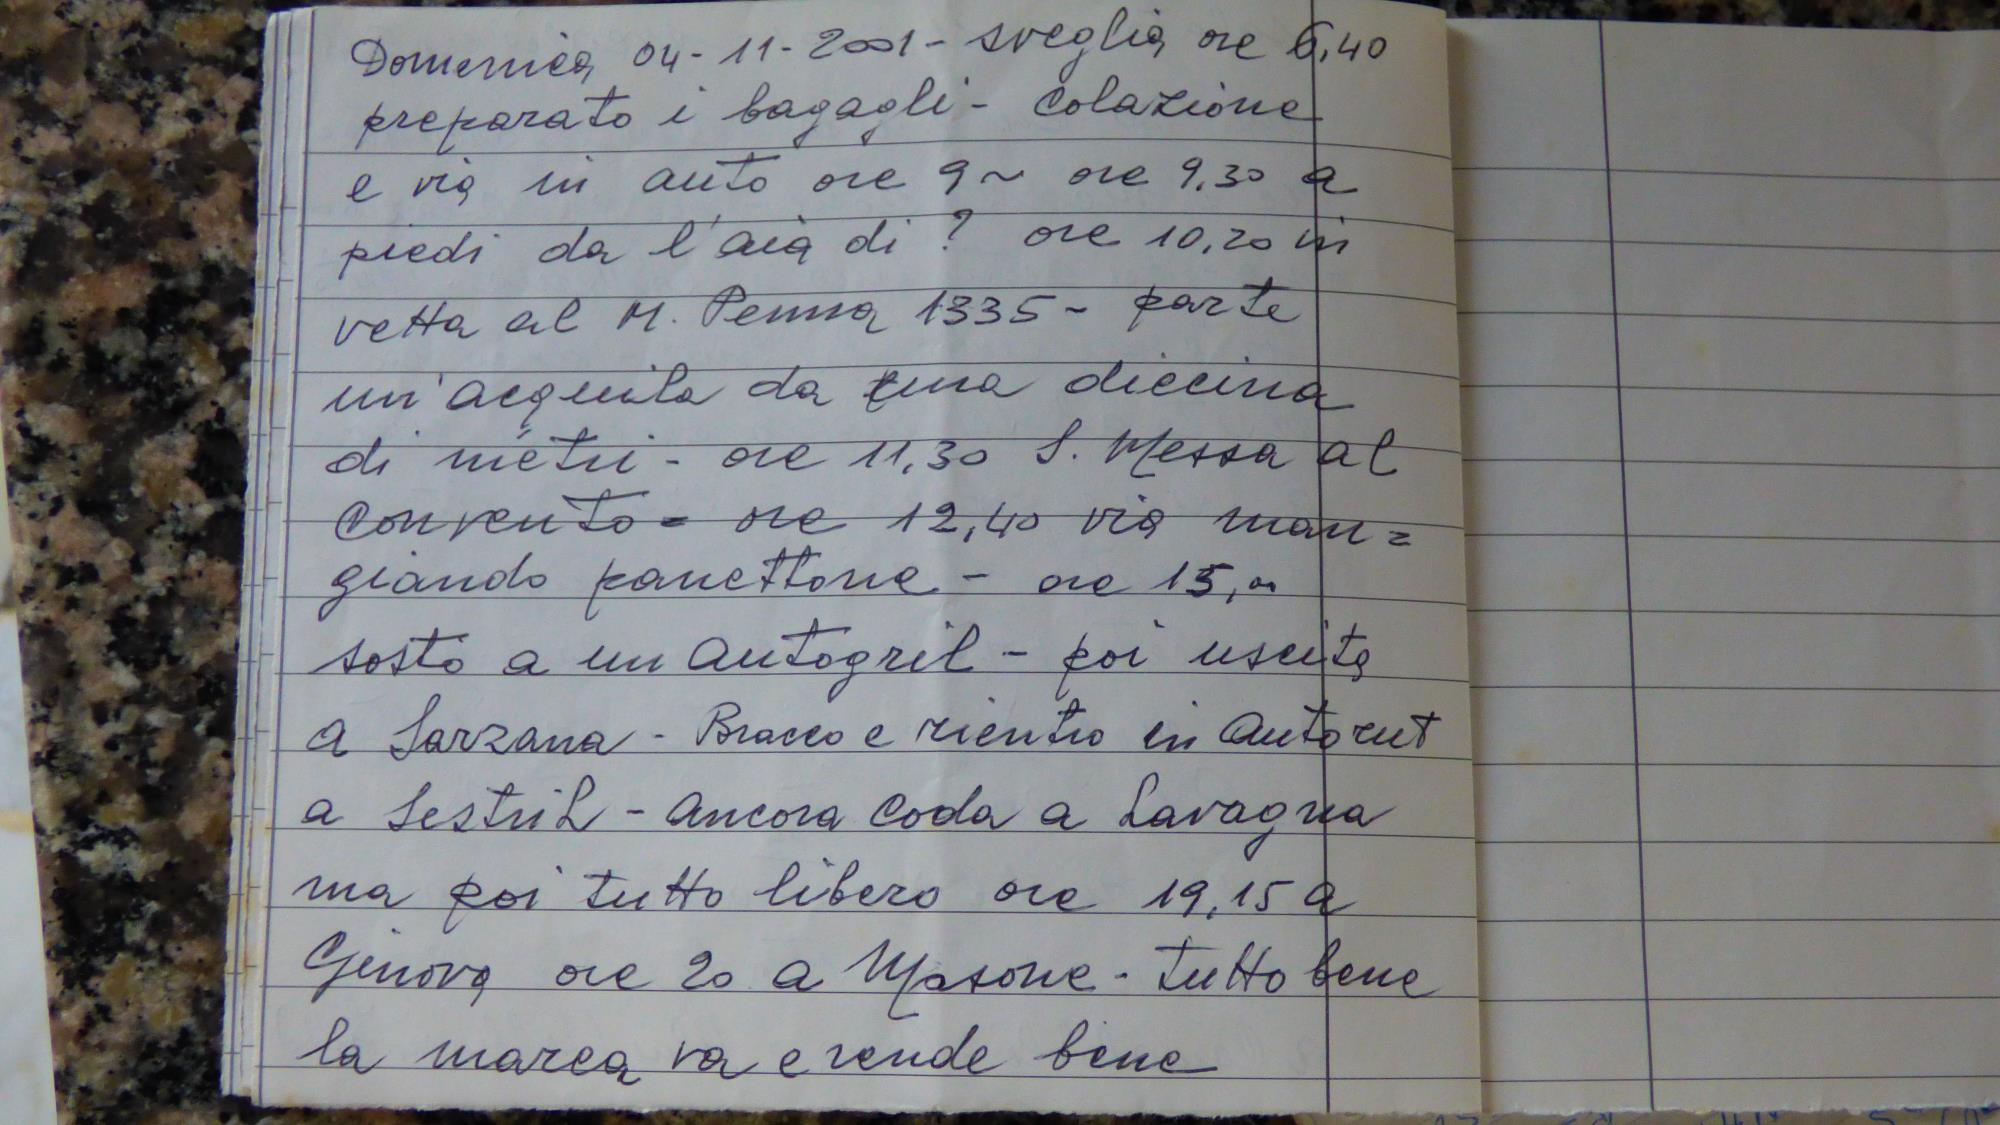 Domenica 04-11-2001 - sveglia ore 6,40
preparato i bagagli - colazione
e via in auto ore 9 ~ ore 9,30 a
piedi da l'aia di ? ore 10,20 in
vetta al M. Penna 1335 - parte
un'acquila da una diecina
di metri - ore 11,30 S. Messa al
convento - ore 12,40 via man=
giando panettone - ore 15,00
sosto a un autogril - poi uscita
a Sarzana - Bracco e rientro in Autorut
a Sestri L - ancora coda a Lavagna
ma poi tutto libero ore 19,15 a
Genova ore 20 a Masone - tutto bene
la marea va e rende bene